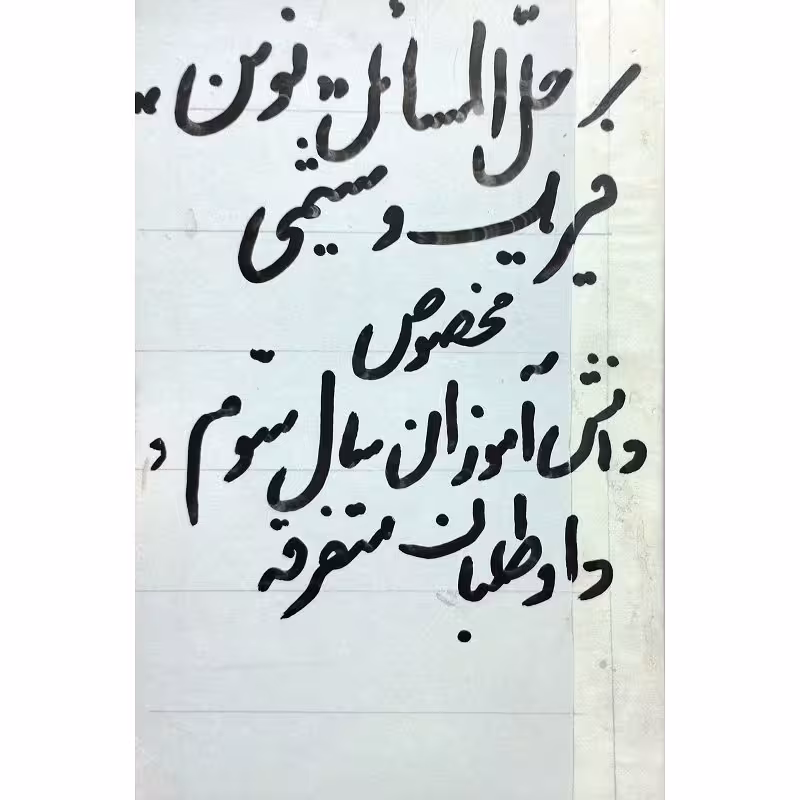 حلّ المسائل نوین
فیزیک و شیمی
مخصوص
دانش آموزان سال سوّم و
داوطلبان متفرقه